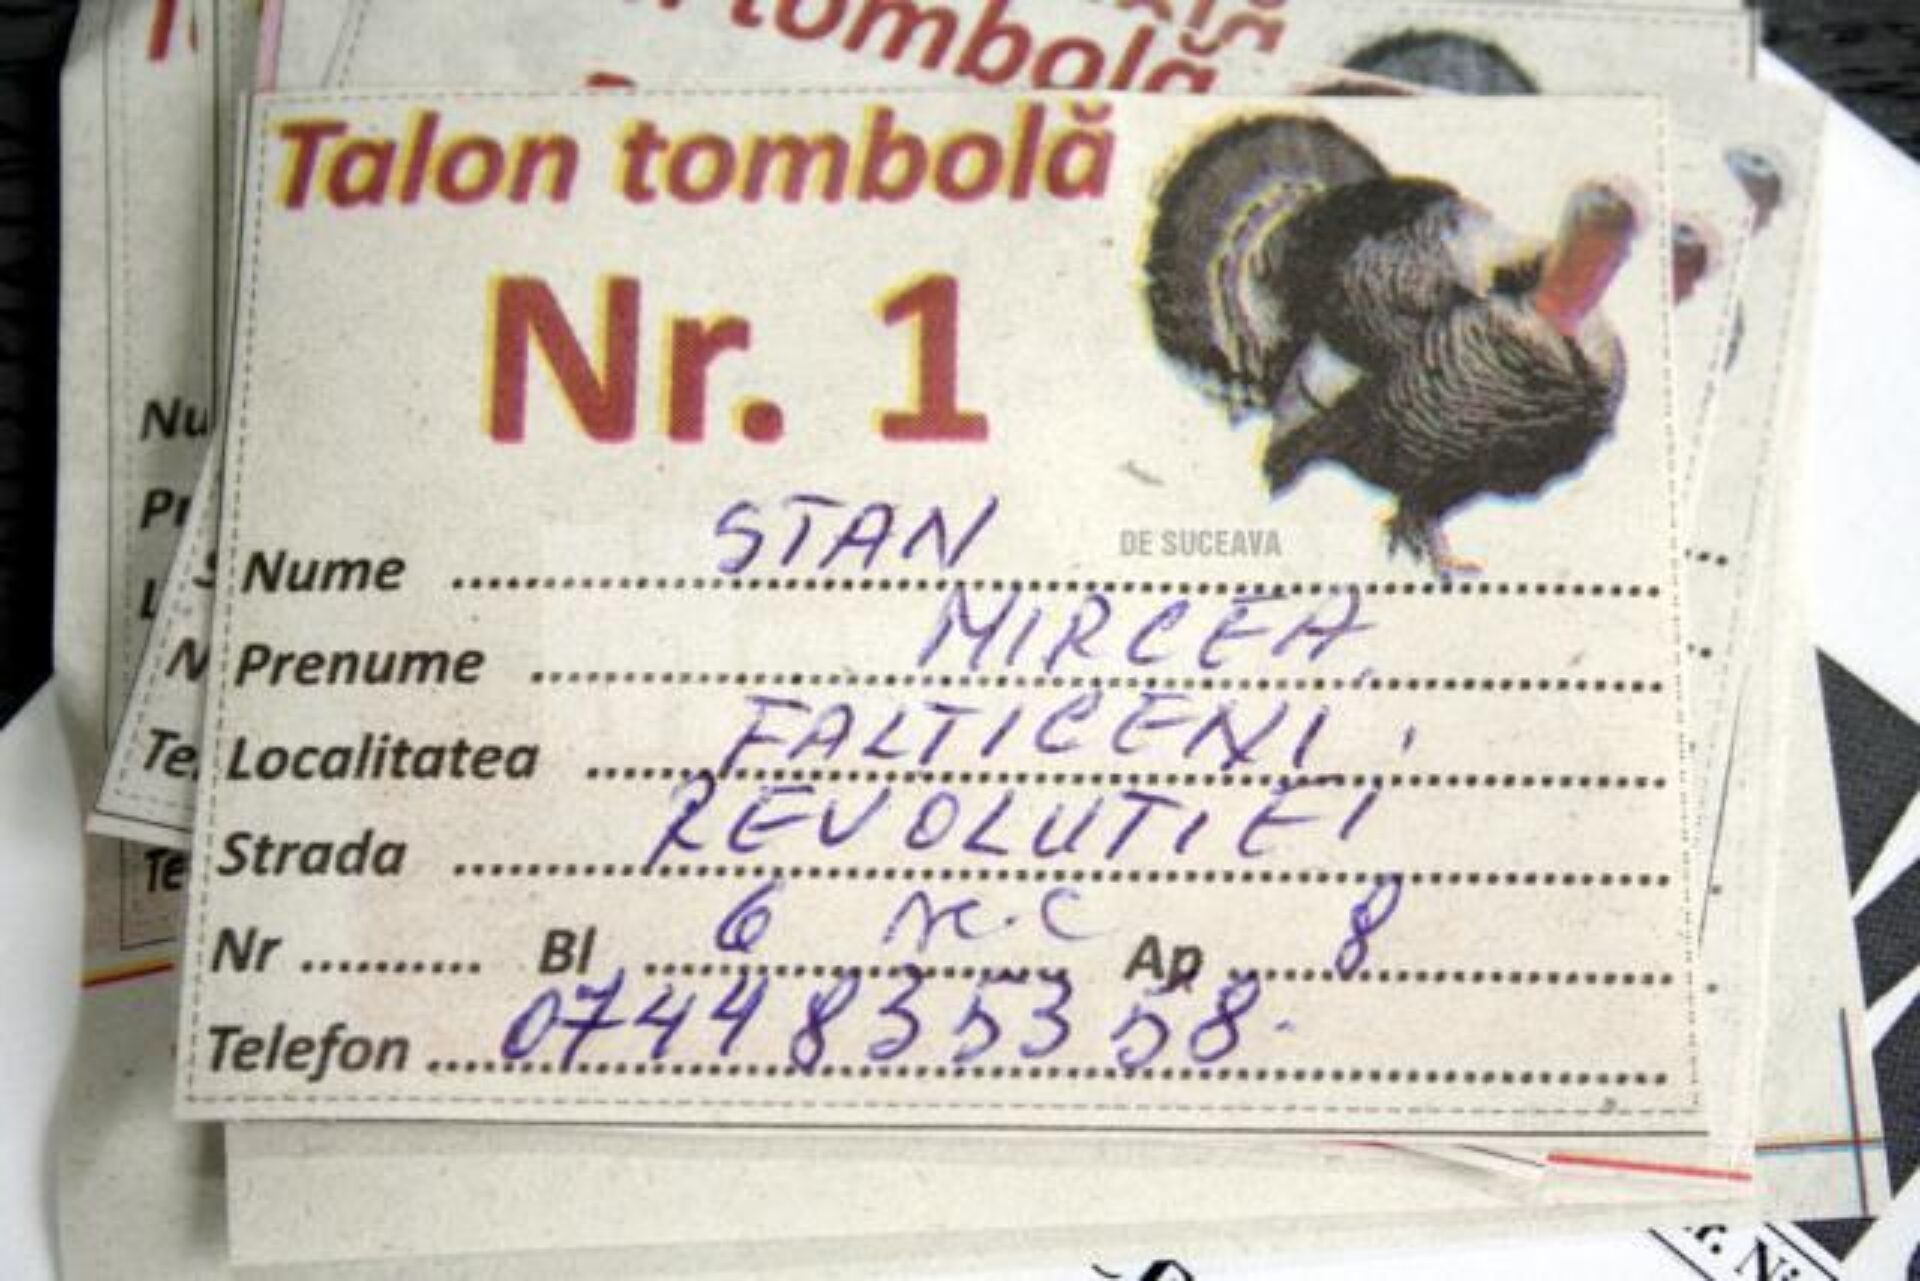 tombolă
Talon tombolă
Nr. 1
Nume STAN
DE SUCEAVA
Prenume MIRCEA
Localitatea FALTICENI
Strada REVOLUTIEI
Nr .......... Bl 6 sc. C Ap 8
Telefon 0744835358